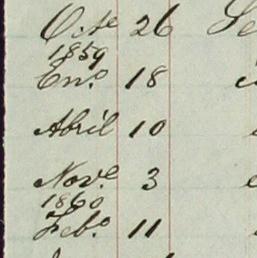 Octe 26
1859
Eno. 18
Abril 10
Nove. 3
1860
Febo. 11